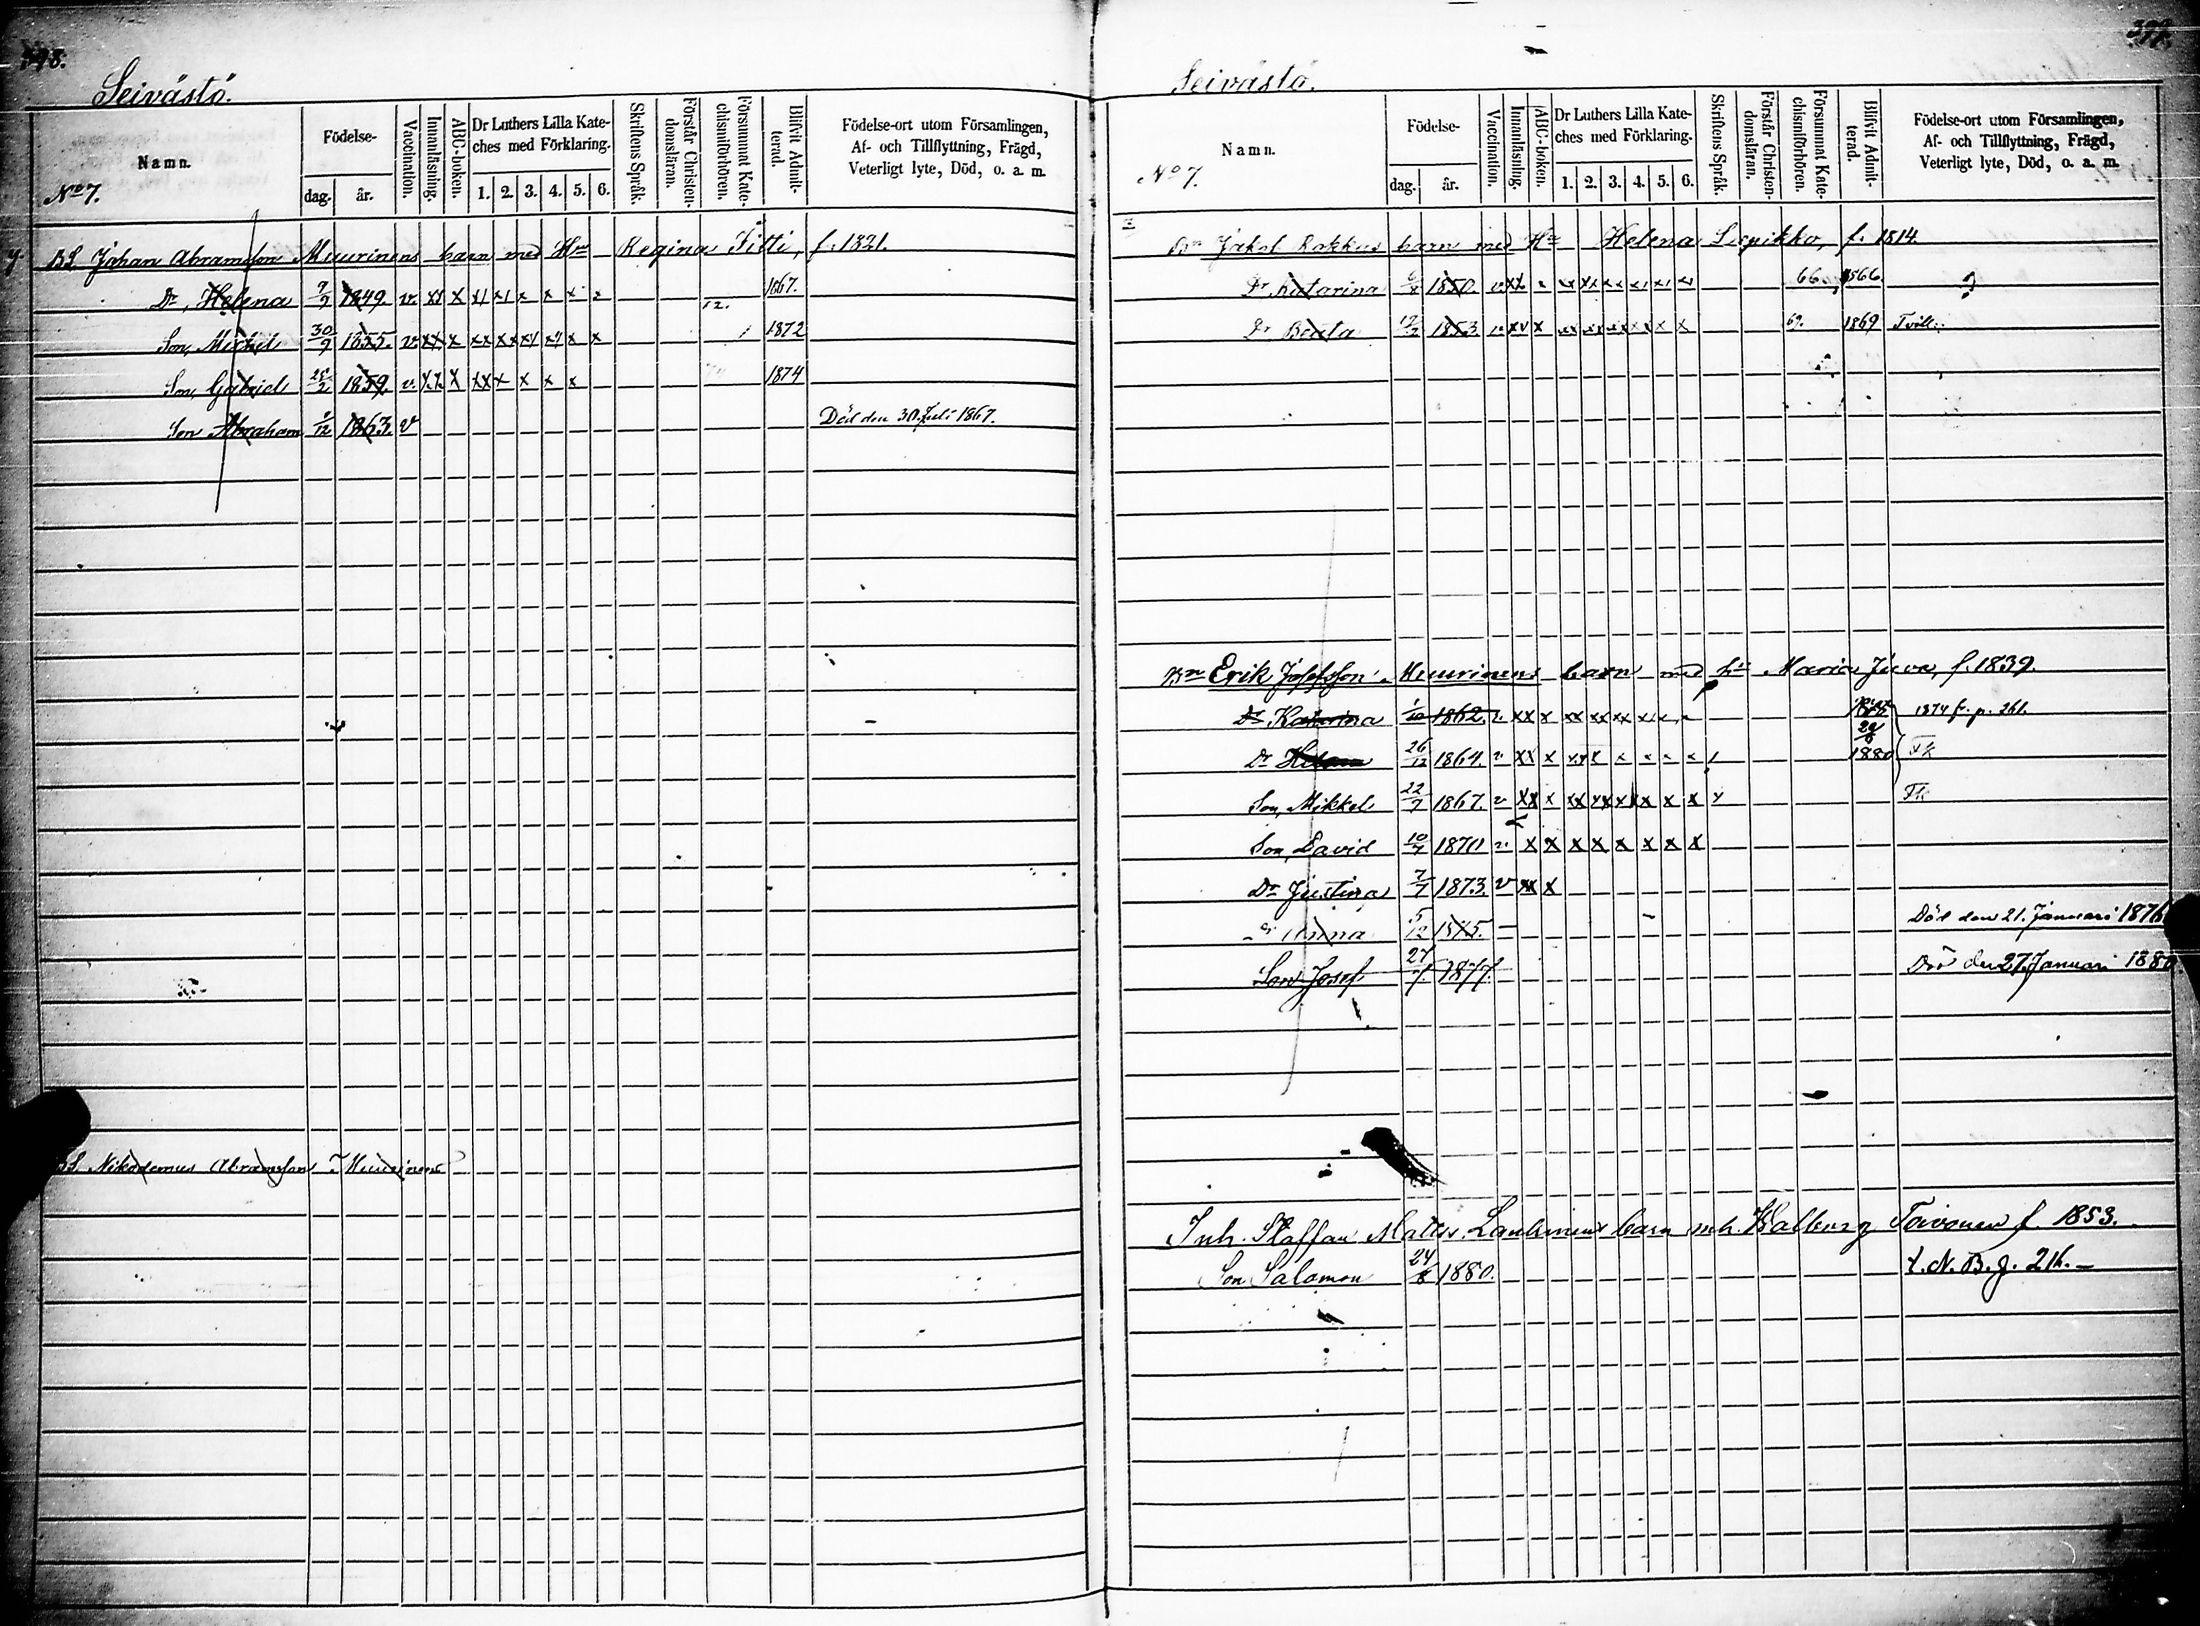 Seivästö.
Namn.
No 7.
Födelse-
dag. år.
Vaccination.
Innanläsning.
ABC-boken.
Dr Luthers Lilla Kate-
ches med Förklaring.
1. 2. 3. 4. 5. 6.
Skriftens Språk.
Förstår Christen-
domsläran.
Försummat Kate-
chismiförhören.
Blifvit Admit-
terad.
Födelse-ort utom Församlingen,
Af- och Tillflyttning, Frägd,
Veterligt lyte, Död, o. a. m.
BS. Johan Abramsson Muurinens barn med Hu Regina Titti, f. 1821.
Dr, Helena 7/9 1849. v. xx x x x x x 1867.
Son, Mickel 30/9 1855. v. xx x xx xx x x x x 1872
Son, Gabriel 25/2 1859. v. xx x xx x x x x 1874
Son Abraham 1/12 1863. v Död den 30 Juli 1867.
BS. Nikodemus Abramsson Muurinens
Seivästö.
Namn.
No 7.
Födelse-
dag. år.
Vaccination.
Innanläsning.
ABC-boken.
Dr Luthers Lilla Kate-
ches med Förklaring.
1. 2. 3. 4. 5. 6.
Skriftens Språk.
Förstår Christen-
domsläran.
Försummat Kate-
chismiförhören.
Blifvit Admit-
terad.
Födelse-ort utom Församlingen,
Af- och Tillflyttning, Frägd,
Veterligt lyte, Död, o. a. m.
Bn Jakob Rokkas barn med Hu Helena Lepikko, f. 1814.
Dr Katarina 1850. 66. 1866.
Dr Beata 1853. 69. 1869
Bn Erik Josefsson Muurinens barn med Maria Juva, f. 1839.
Dr Katarina 1/10 1862. v. xx x xx xx xx x x 1874 f. p. 261.
Dr Helena 26/12 1864. v xx x 1880
Son, Mikkel 22/7 1867. v xx x xx xx xx x x x
Son, David 10/7 1870 v. x x x x x x x x
Dr Justina 7/7 1873. v xx x
Anna 5/12 1875. Död den 21. Januari 1876
Son Josef 27/7 1877. Död den 27. Januari 1880
Inh. Staffan Matts. Laulainens barn m. h. Walborg Toivonen f. 1853.
Son Salomon 24/8 1880. t. N. B. g. 216.